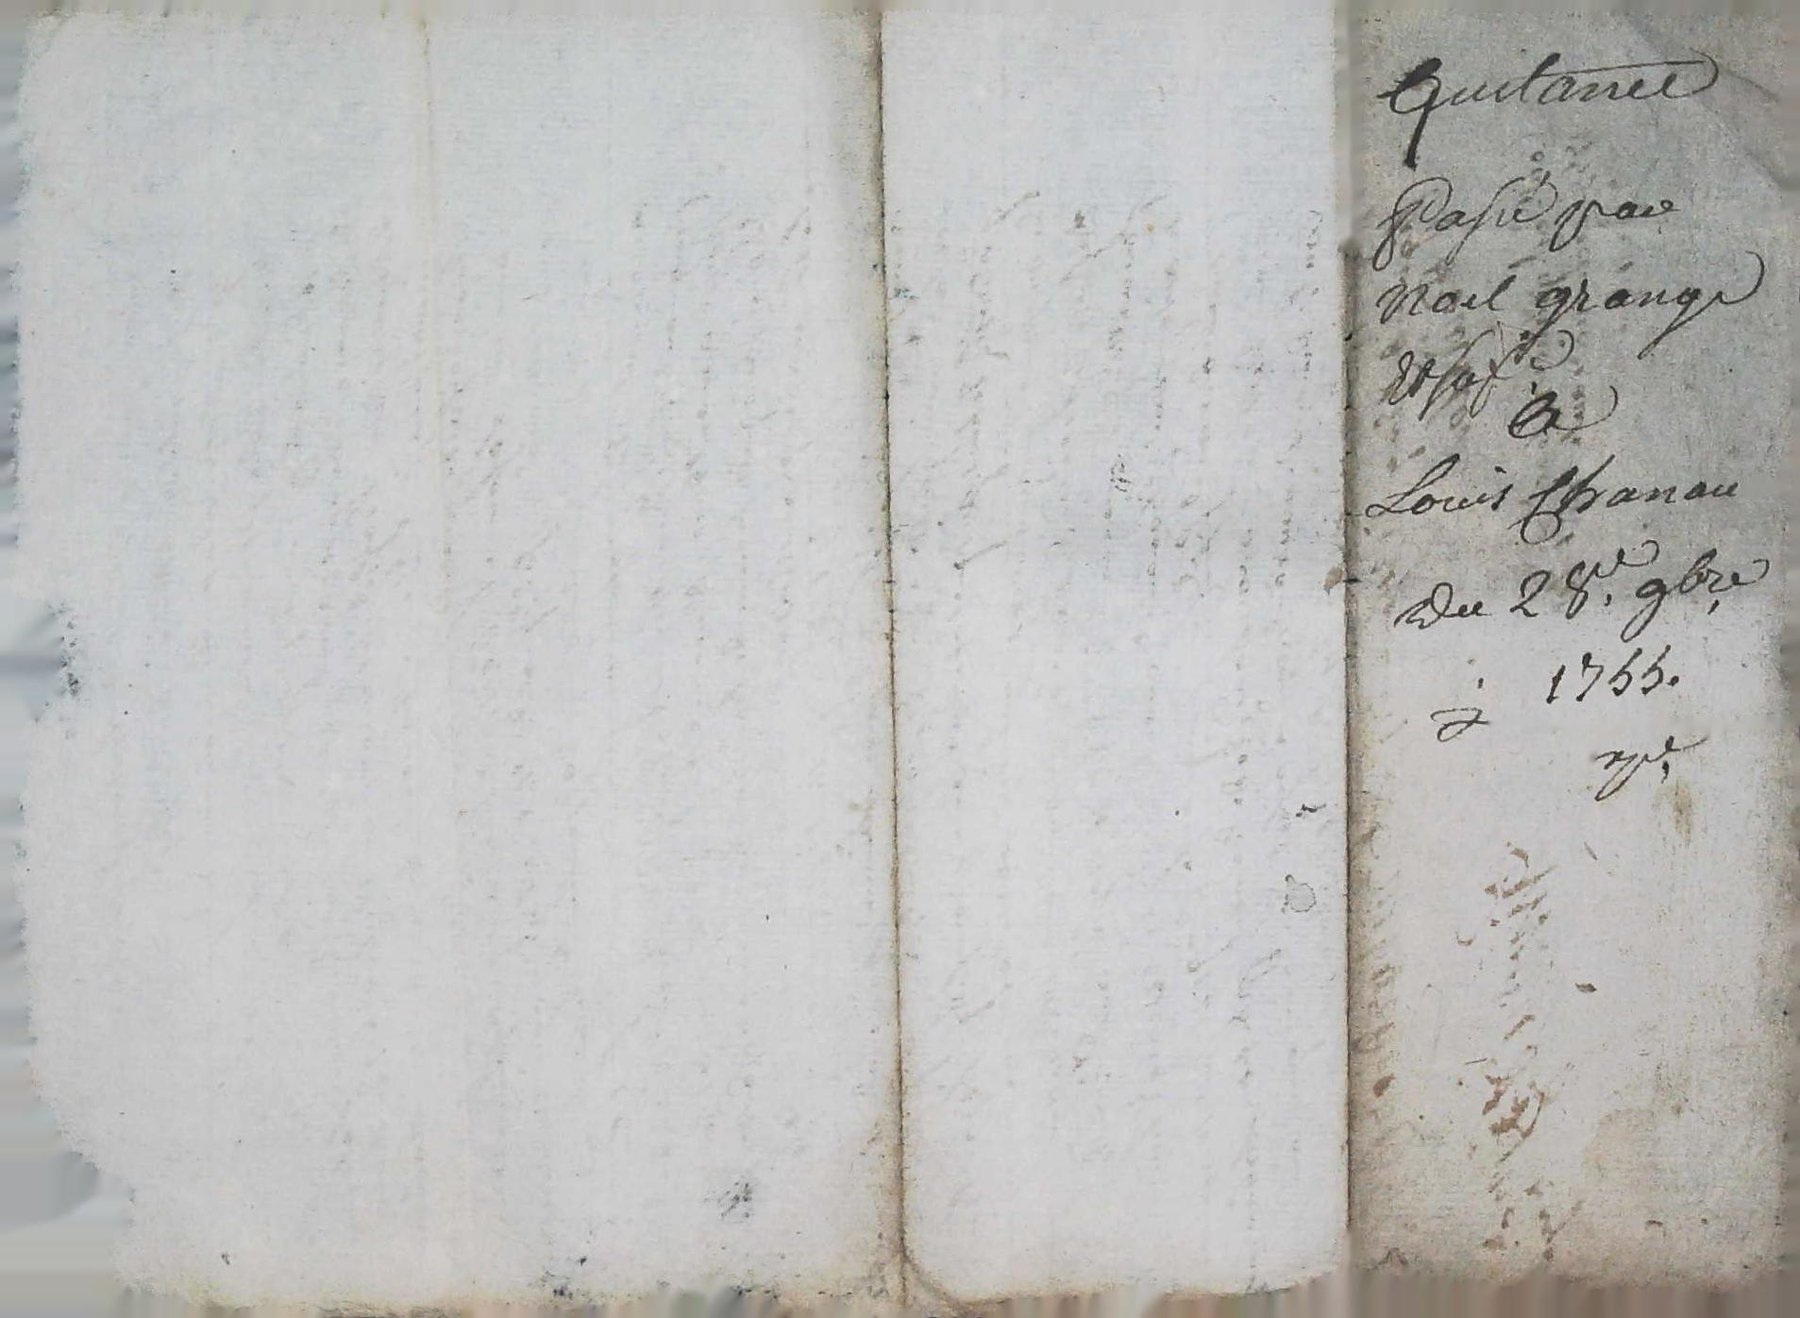 Quitance
Passée par
Noël grange
à
Louis Chanau
Du 28e. 9bre.
1755.